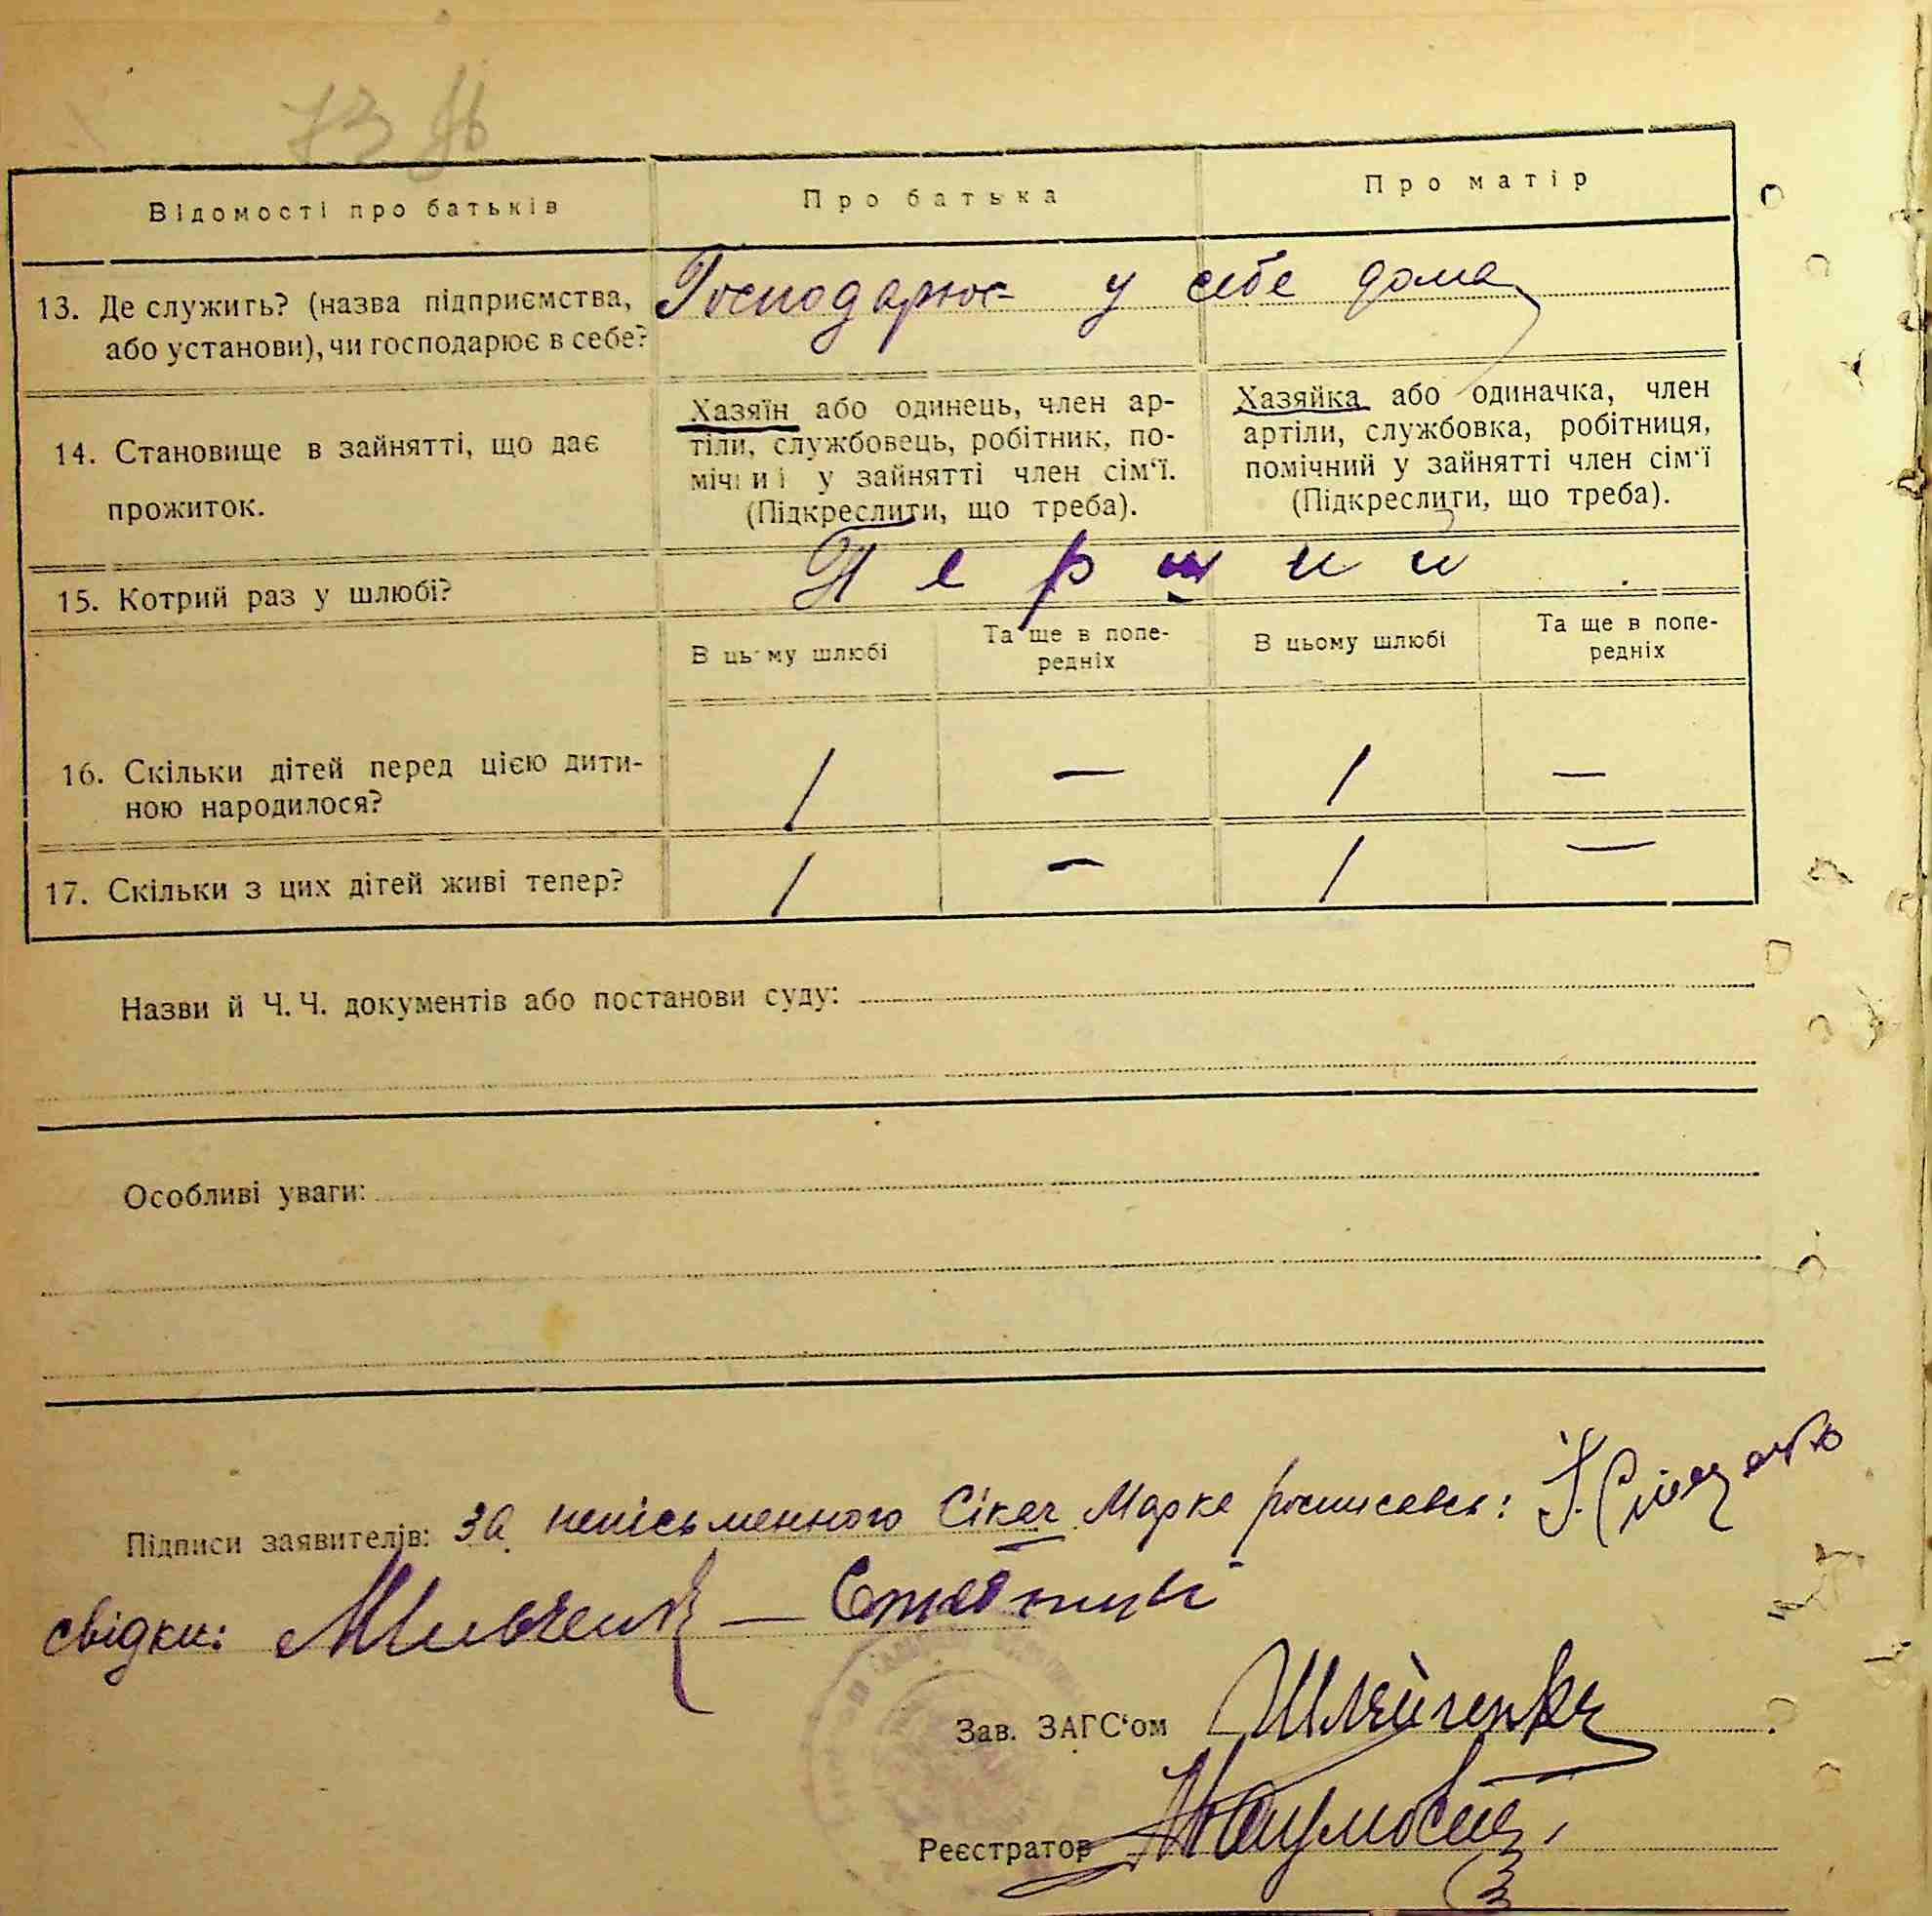 73
Відомості про батьків
Про батька
Про матір
13. Де служить? (назва підприємства,
або установи), чи господарює в себе?
Господарює у себе дома
14. Становище в зайнятті, що дає
прожиток.
Хазяїн або одинець, член ар-
тіли, службовець, робітник, по-
мічний у зайнятті член сім'ї.
(Підкреслити, що треба).
Хазяйка або одиначка, член
артіли, службовка, робітниця,
помічний у зайнятті член сім'ї
(Підкреслити, що треба).
15. Котрий раз у шлюбі?
Перший
В цьому шлюбі
Та ще в попе-
редніх
В цьому шлюбі
Та ще в попе-
редніх
16. Скільки дітей перед цією дити-
ною народилося?
1 — 1 —
17. Скільки з цих дітей живі тепер?
1 — 1 —
Назви й Ч. Ч. документів або постанови суду:
Особливі уваги:
Підписи заявителів: За неписьменного Сікач Марка росписавсь:
свідки:
Зав. ЗАГС'ом
Реєстратор